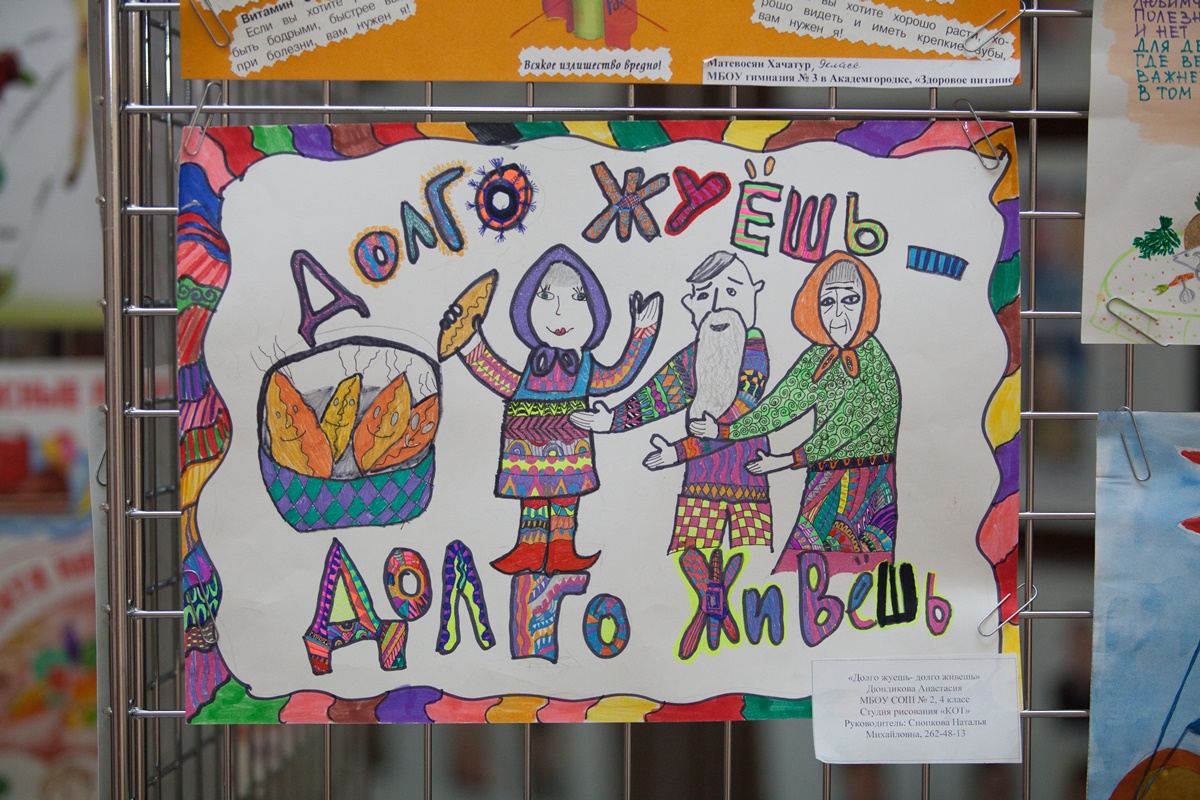 Витамин
Если вы хотите
быть бодрыми, быстрее вы
при болезни, вам нужен я!
Всякое излишество вредно!
вы хотите хорошо расти, хо-
рошо видеть и иметь крепкие зубы,
вам нужен я!
Матевосян Хачатур, 9 класс
МБОУ гимназия № 3 в Академгородке, «Здоровое питание
ПОЛЕЗН
И НЕТ
ДЛЯ ДЕ
ГДЕ ВЕ
ВАЖНЕ
В ТОМ
ДОЛГО ЖУЁШЬ –
ДОЛГО ЖИВЁШЬ
«Долго жуешь- долго живешь»
Дюндикова Анастасия
МБОУ СОШ № 2, 4 класс
Студия рисования «КОТ»
Руководитель: Снопкова Наталья
Михайловна, 262-48-13